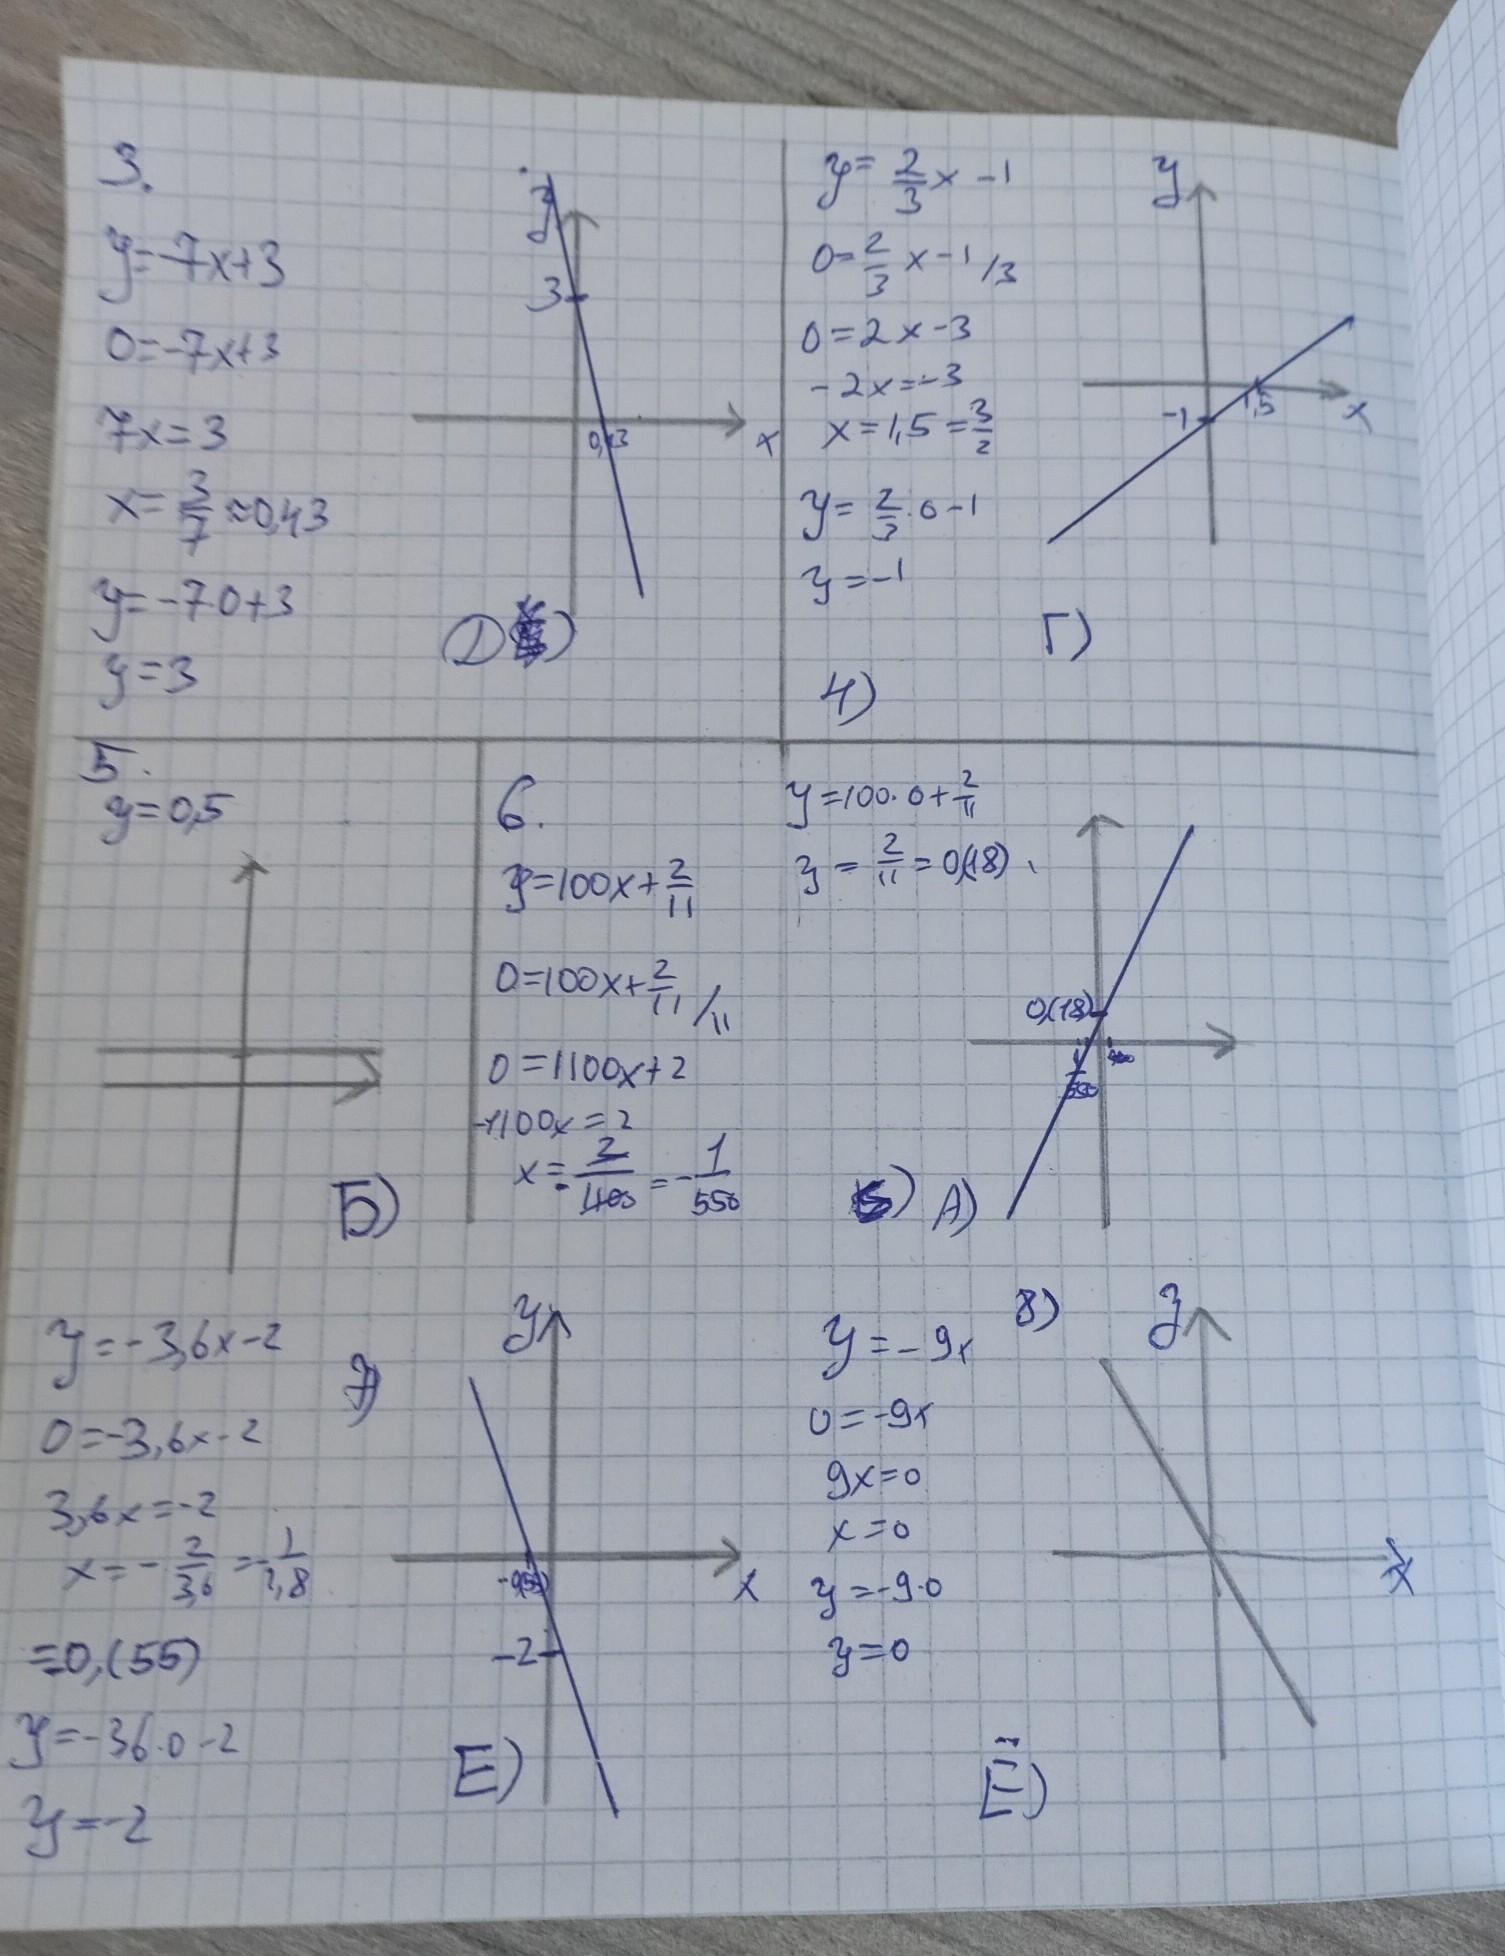 3.
y=-7x+3
0=-7x+3
7x=3
x=3/7≈0,43
y=-7·0+3
y=3
y
3
0,43
x
Д)
y=2/3x-1
0=2/3x-1 /3
0=2x-3
-2x=-3
x=1,5=3/2
y=2/3·0-1
y=-1
4)
y
-1
1,5
x
Г)
5.
y=0,5
Б)
6.
y=100x+2/11
0=100x+2/11 /11
0=1100x+2
-1100x=2
=-1/550
y=100·0+2/11
y=2/11=0,(18)
0,(18)
1/550
А)
7)
y=-3,6x-2
0=-3,6x-2
3,6x=-2
x=-2/3,6=-1/1,8
=0,(55)
y=-36·0-2
y=-2
y
x
-2
Е)
8)
y=-9x
0=-9x
9x=0
x=0
y=-9·0
y=0
y
x
Ё)